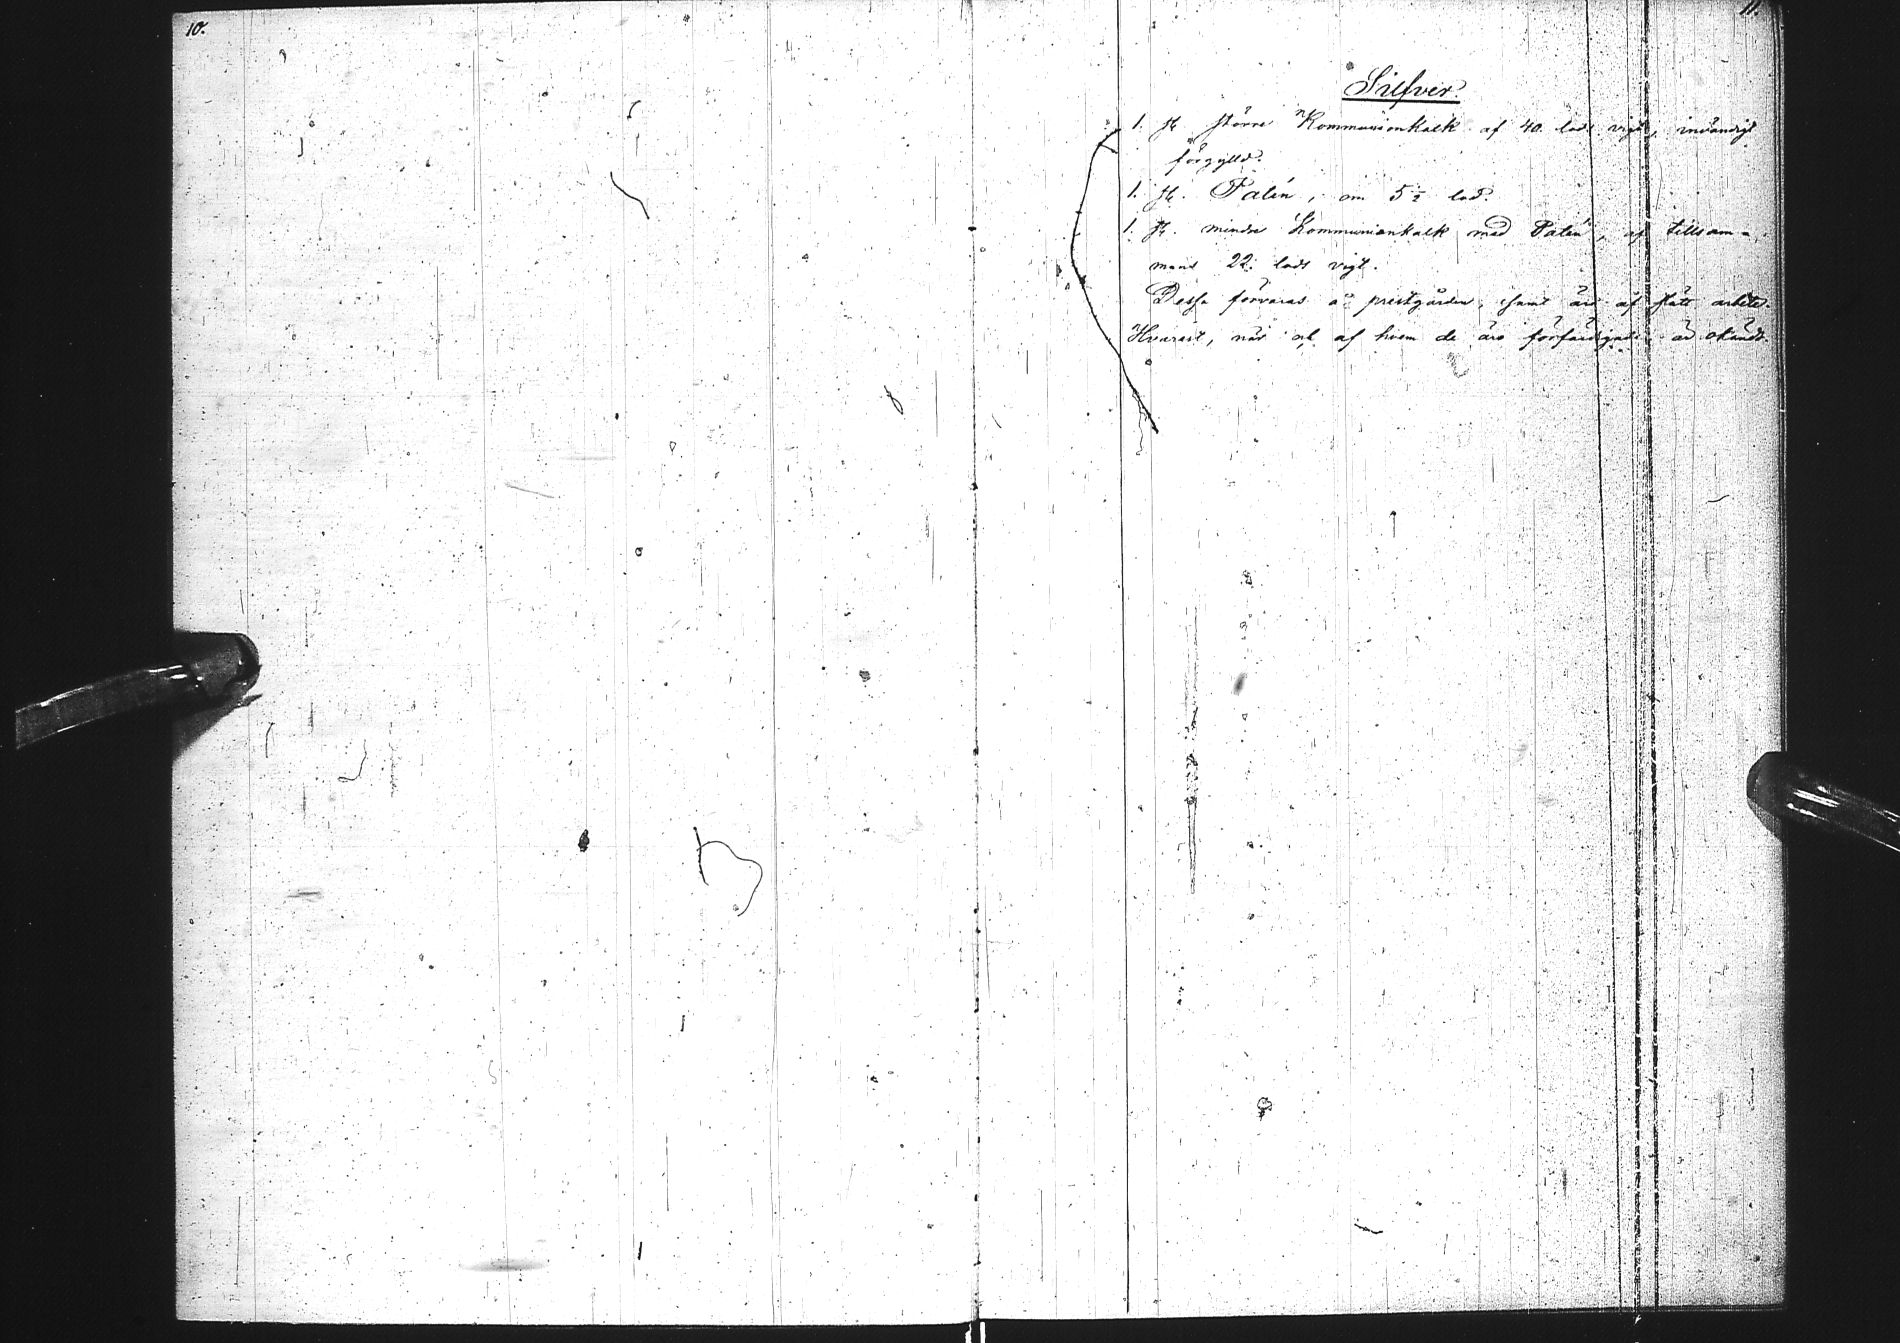 10.
11.
Silfver.
1. st. större Kommunionkalk af 40. lods vigt, invändigt
förgylld.
1. st. Patén, om 5½ lod.
1. st. mindre Kommunionkalk med Patén, af tillsam-
mans 22. lods vigt.
Dessa förvaras å prestgården, samt äro af slätt arbete.
Hvarest, när och af hvem de äro förfärdigade, är okändt.